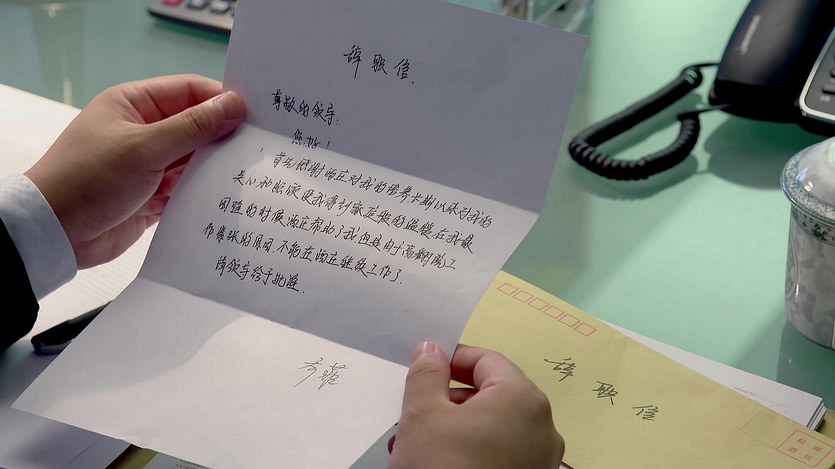 辞职信.
尊敬的领导:
您好!
首先感谢酒店对我的培养长期以来对我的
关心和照顾使我得到家庭般的温暖在我最
困难的时候酒店帮助了我但是由于工
作紧张的原因.不能在酒店继续工作了.
请领导给予批准.
辞职信